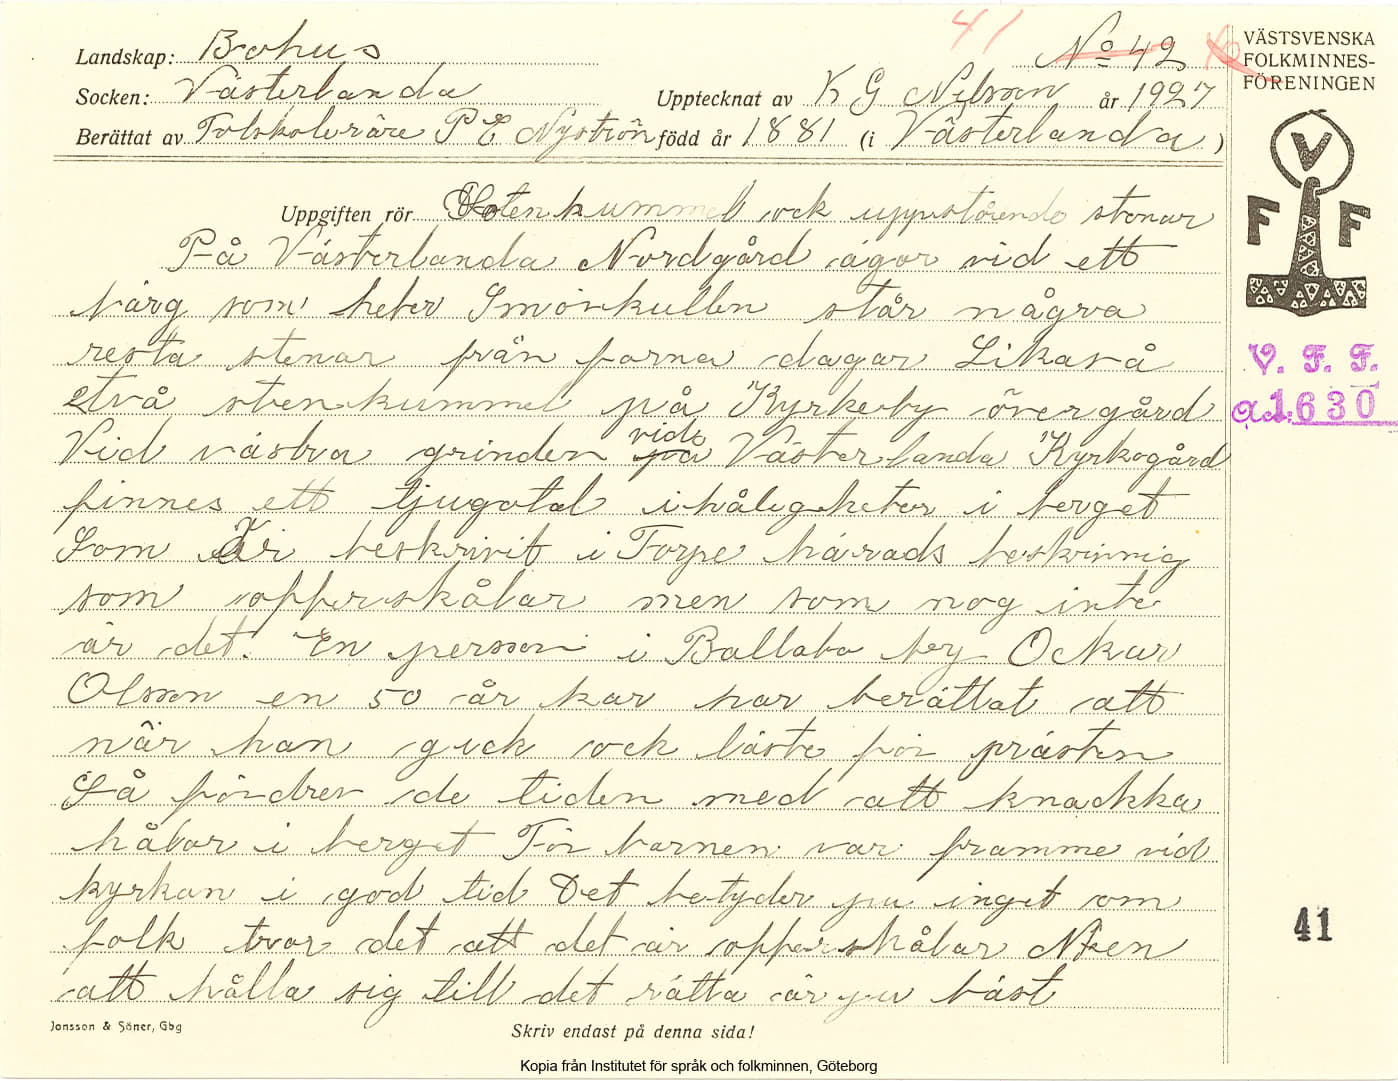 41
Landskap: Bohus No 42
Socken: Västerlanda Upptecknat av K G Nilsson år 1927
Berättat av Folskoleräre P E Nyströn född år 1881 (i Västerlanda )
VÄSTSVENSKA
FOLKMINNES-
FÖRENINGEN
V
F F
Uppgiften rör Stenkummel ock uppstående stenar
På Västerlanda Nordgård ägor vid ett
bärg som heter Smörkullen står några
resta stenar från forna dagar Likaså
två stenkummel på Kyrkeby övergård
Vid västra grinden vid Västerlanda Kyrkogård
finnes ett tjugotal ihåligheter i berget
Som är beskrivit i Torpe härads beskrivnig
som opperskålar men som nog inte
är det. En person i Ballabo by Ockar
Olsson en 50 år kar har berättat att
när han gick ock läste för prästen
Så fördrev de tiden med att knackka
hålor i berget För barnen var framme vid
kyrkan i god tid Det betyder ju inget om
folk tror det att det är opperskålar Men
att hålla sig till det rätta är ju bäst
V. F. F.
Ad. 1630
41
Jonsson & Söner, Gbg
Skriv endast på denna sida!
Kopia från Institutet för språk och folkminnen, Göteborg